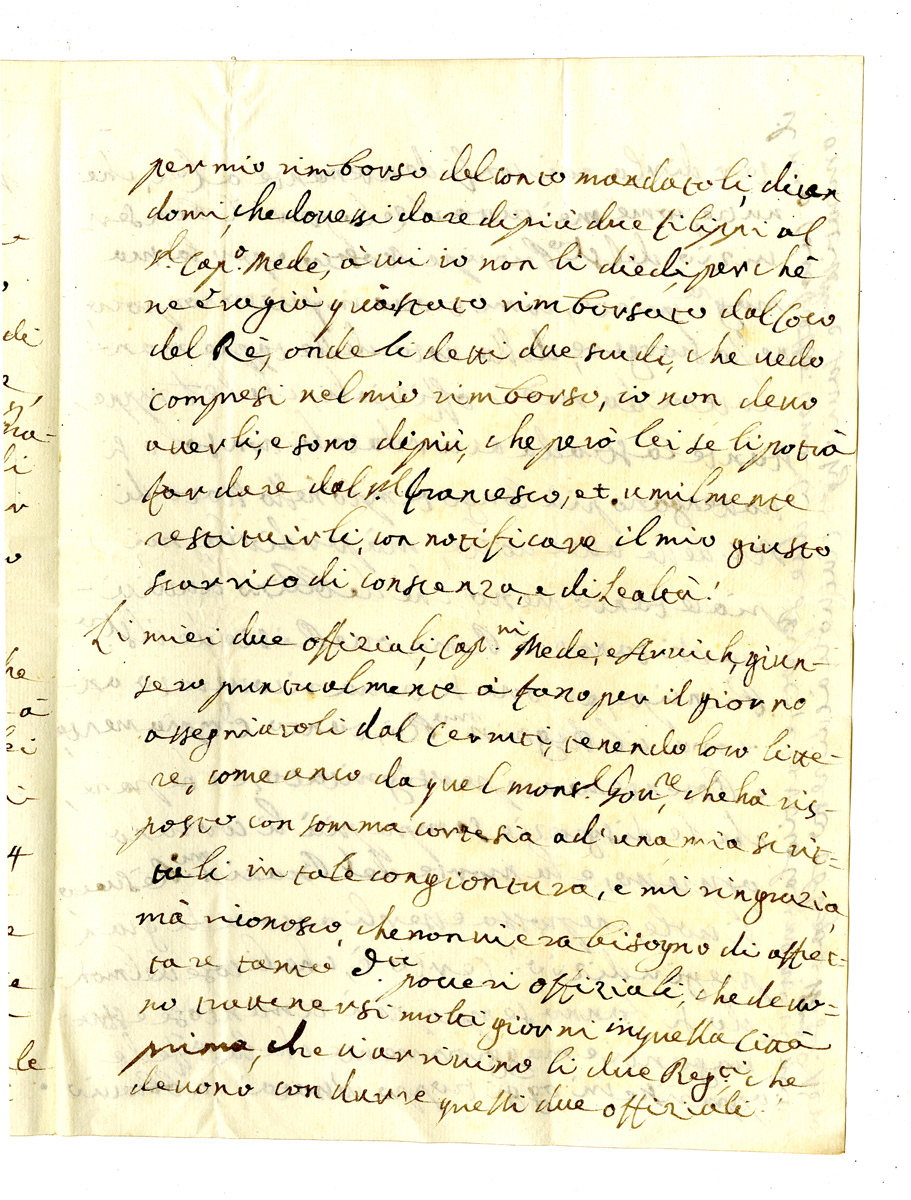 2
per mio rimborso del conto mandatoli, dicen
domi, che dovessi dare di più due filippi al
s.r Cap.o Medè, à cui io non li diedi, perchè
ne era già quà stato rimborsato dal Coco
del Rè, onde li detti due scudi, che vedo
compresi nel mio rimborso, io non devo
averli, e sono di più, che però lei se li potrà
far dare dal s.r Francesco, et umilmente
restituirli, con notificare il mio giusto
scarrico di conscienza, e di Lealtà!
Li miei due offiziali, Cap.ni Medè, e giun-
sero puntualmente à fano per il giorno
assegniatoli dal Ceruti, tenendo loro litte-
re, come anco da quel mons.r Gov.re, che hà ris-
posto con somma cortesia ad' una mia scrit-
tali in tale congiontura, e mi ringrazia,
mà riconosco, che non vi era bisogno di affret-
tare tanto d.ti poveri offiziali, che devo-
no trattenersi molti giorni in quella Città
prima, che vi arrivino li due Reg.ti, che
devono condurre quelli due offiziali!
di
li
r
o
he
à
ei
4
e
le